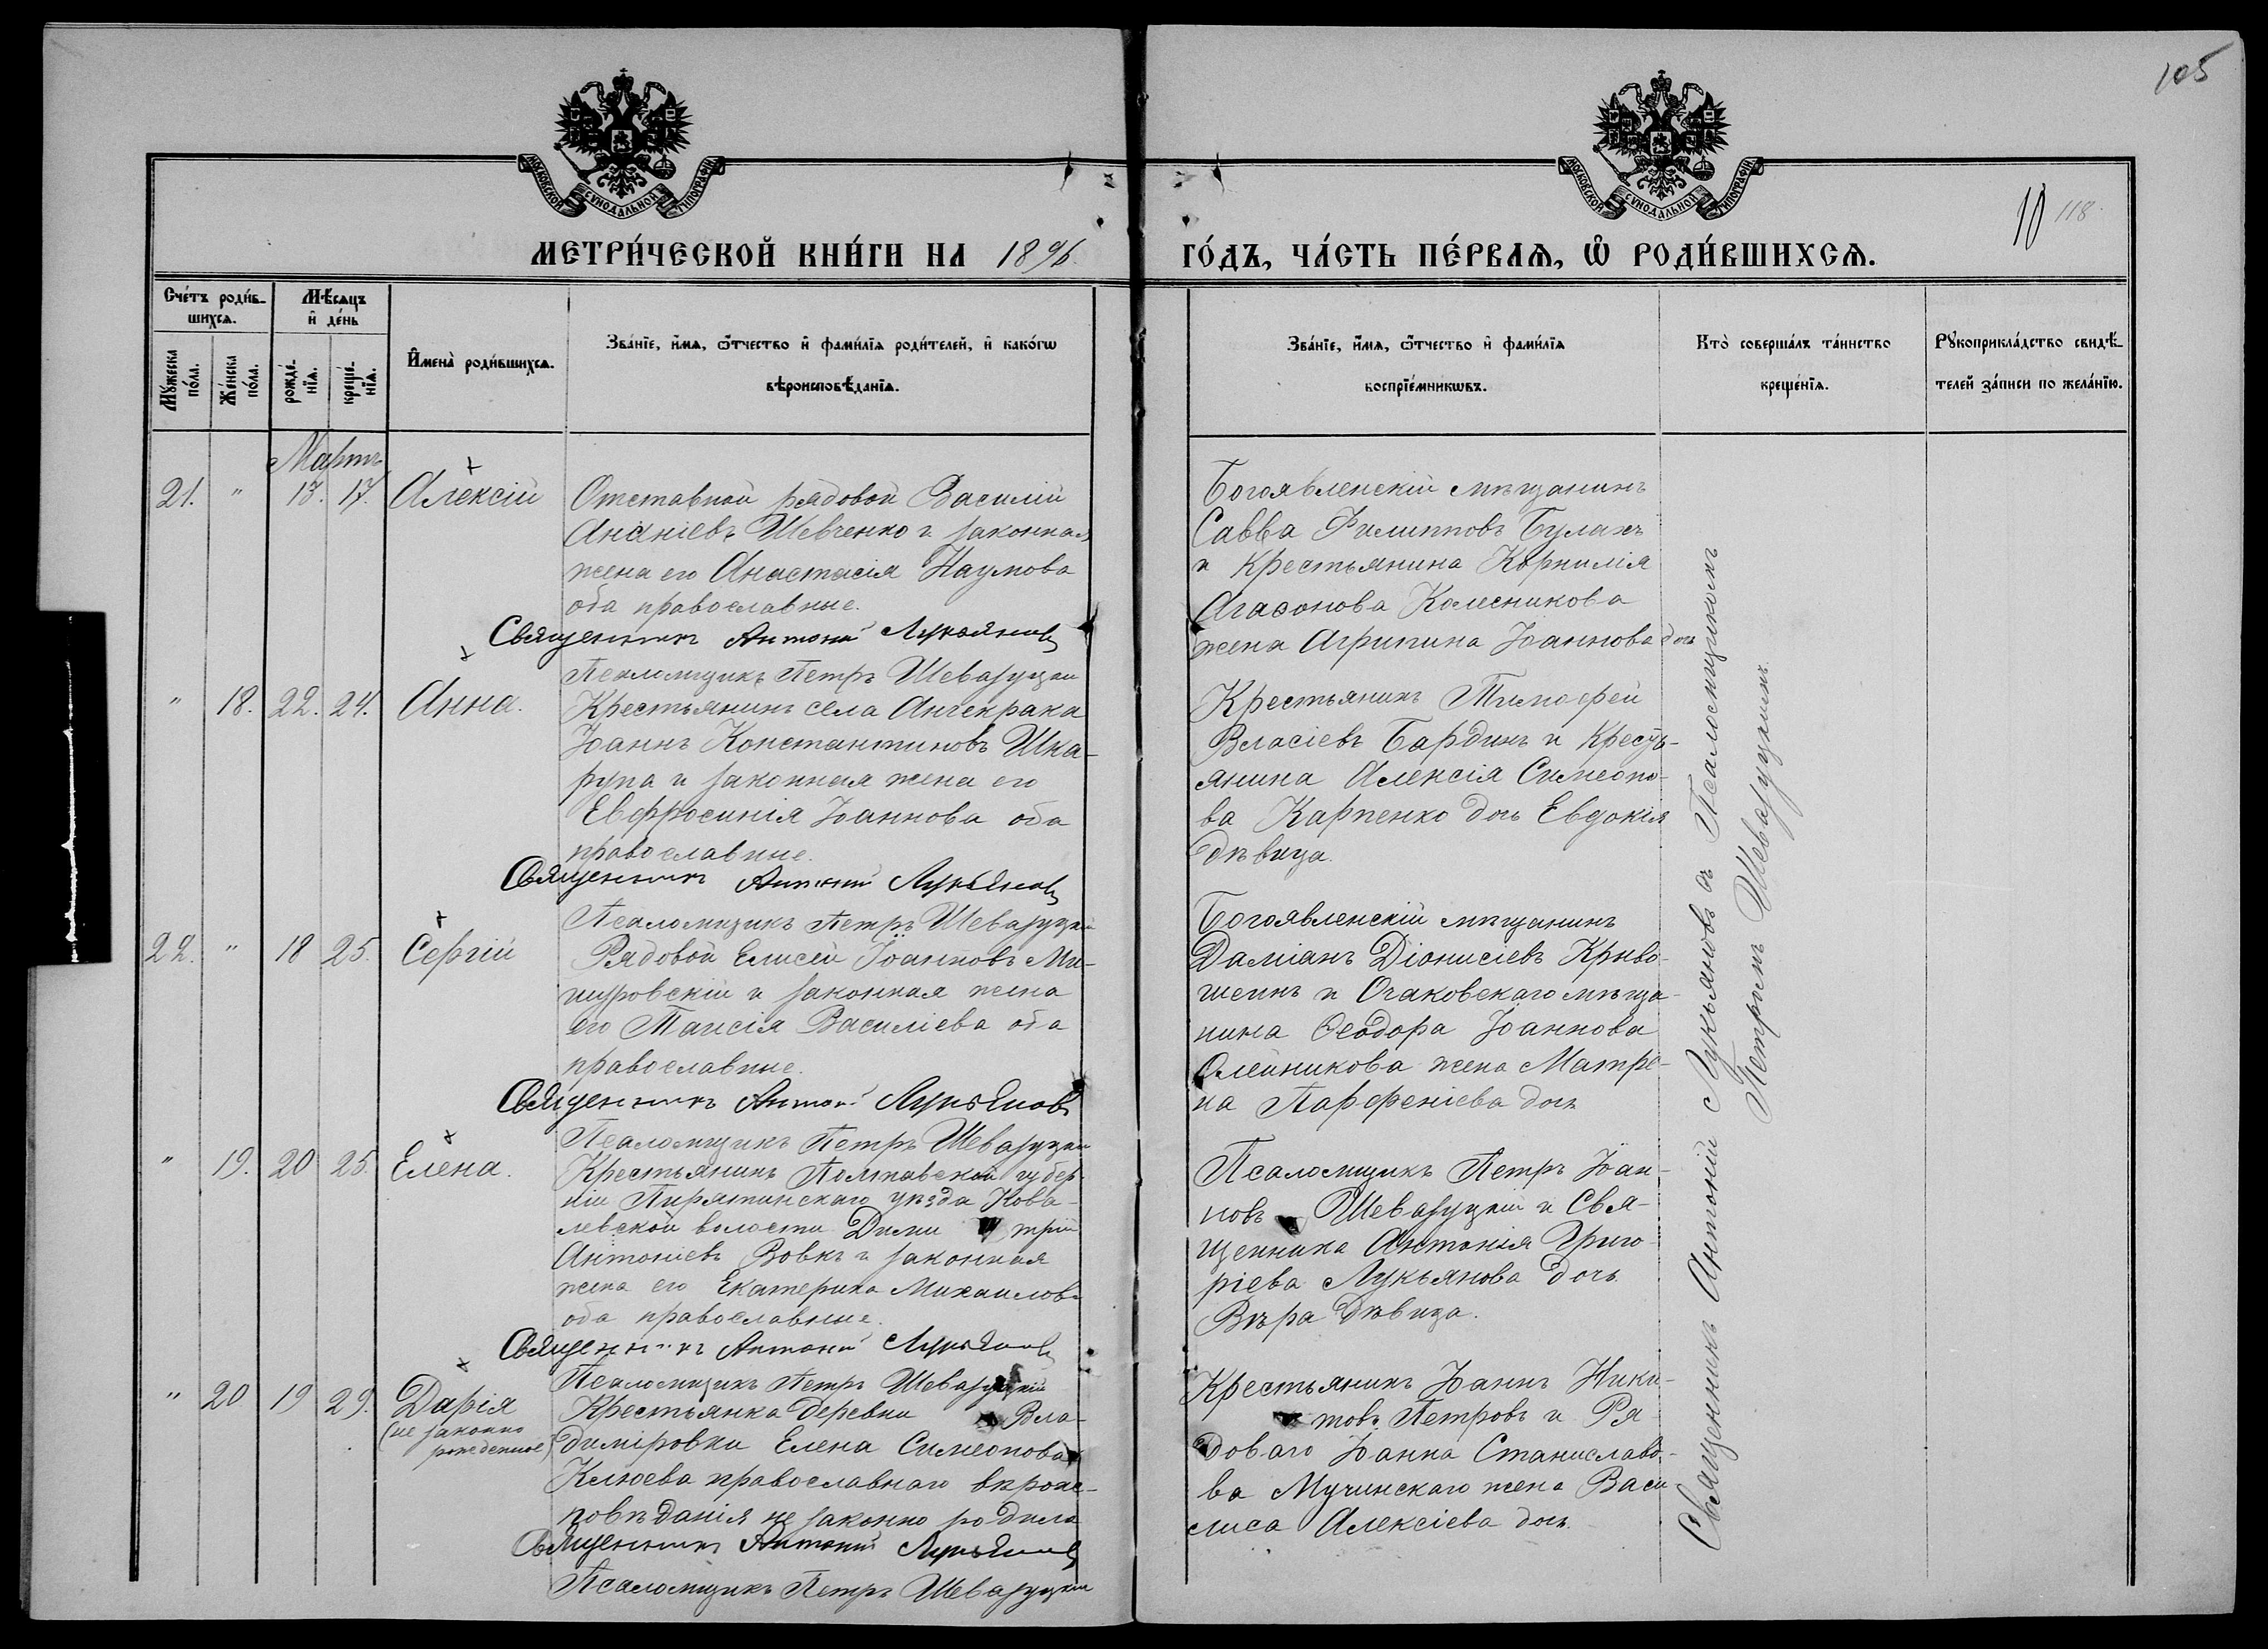 105
МОСКОВСКОЙ СѴНОДАЛЬНОЙ ТИПОГРАФІИ
МОСКОВСКОЙ СѴНОДАЛЬНОЙ ТИПОГРАФІИ
10 118.
МЕТРИ́ЧЕСКОЙ КНИ́ГИ НА 1896
ГО́ДЪ, ЧА́СТЬ ПЕ́РВАѦ, Ѽ РОДИ́ВШИХСѦ.
Сче́тъ роди́в-
шихсѧ.
Мѣ́сѧцъ
и҆ де́нь
Мꙋ́жеска
по́ла.
Же́нска
по́ла.
рожде́-
нїѧ.
креще́-
нїѧ.
И҆мена̀ роди́вшихсѧ.
Зва́нїе, и҆́мѧ, ѻ҆́тчество и҆ фами́лїѧ роди́телей, и҆ како́гѡ
вѣроисповѣ́данїѧ.
Зва́нїе, и҆́мѧ, ѻ҆́тчество и҆ фами́лїѧ
воспрїе́мникѡвъ.
Кто̀ соверша́лъ та́инство
креще́нїѧ.
Рꙋкоприкла́дство свидѣ́-
телей за́писи по жела́нїю.
Мартъ
21. " 13. 17. Алексій
Отставной рядовой Василій
Ананіевъ Шевченко и законная
жена его Анастасія Наумова
оба православные.
Священникъ Антоній Лукьяновъ
Псаломщикъ Петръ Шевазуцкій
Богоявленскій мѣщанинъ
Савва Филипповъ Булахъ
и Крестьянина Корнилія
Агаѳонова Колесникова
жена Агрипина Іоаннова дочь
" 18. 22. 24. Анна.
Крестьянинъ села Анчекрака
Іоаннъ Константиновъ Шка-
рупа и законная жена его
Евфросинія Іоаннова оба
православные.
Священникъ Антоній Лукьяновъ
Псаломщикъ Петръ Шевазуцкій
Крестьянинъ Тимофей
Власіевъ Бардинъ и Кресть-
янина Алексія Симеоно-
ва Карпенко дочь Евдокія
дѣвица.
22. " 18 25. Сергій
Рядовой Елисей Іоанновъ Ми-
шуровскій и законная жена
его Таисія Василіева оба
православные.
Священникъ Антоній Лукьяновъ
Псаломщикъ Петръ Шевазуцкій
Богоявленскій мѣщанинъ
Даміанъ Діонисіевъ Криво-
шеинъ и Очаковскаго мѣща-
нина Ѳеодора Іоаннова
Олейникова жена Матре-
на Парфеніева дочь
" 19. 20 25. Елена.
Крестьянинъ Полтавской губер-
ніи Пирятинскаго уѣзда Кова-
левской волости Дими трій
Антоніевъ Вовкъ и законная
жена его Екатерина Михаилова
оба православные.
Священникъ Антоній Лукьяновъ
Псаломщикъ Петръ Шевазуцкій
Псаломщикъ Петръ Іоан-
новъ Шевазуцкій и Свя-
щенника Антонія Григо-
ріева Лукьянова дочь
Вѣра дѣвица.
" 20 19 29. Дарія
(не законно
рожденное)
Крестьянка деревни Вла-
диміровки Елена Симеонова
Клюева православнаго вѣроис-
повѣданія не законно родила
Священникъ Антоній Лукьяновъ
Псаломщикъ Петръ Шевазуцкій
Крестьянинъ Іоаннъ Ники-
товъ Петровъ и Ря-
доваго Іоанна Станиславо-
ва Мучинскаго жена Васи
лиса Алексіева дочь.
Священникъ Антоній Лукьяновъ съ Псаломщикомъ
Петромъ Шевазуцкимъ.